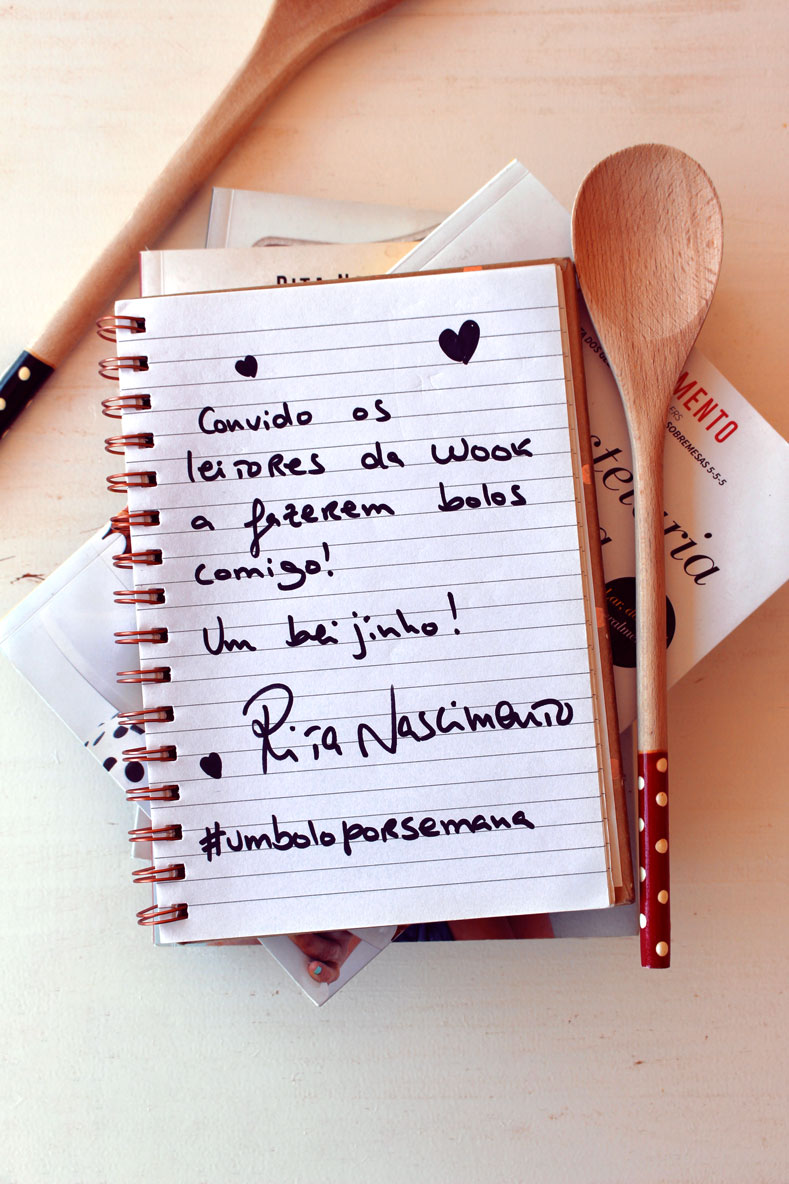 Convido os
leitores da Wook
a fazerem bolos
comigo!
Um beijinho!
Rita Nascimento
#umboloporsemana
MENTO
SOBREMESAS 5-5-5